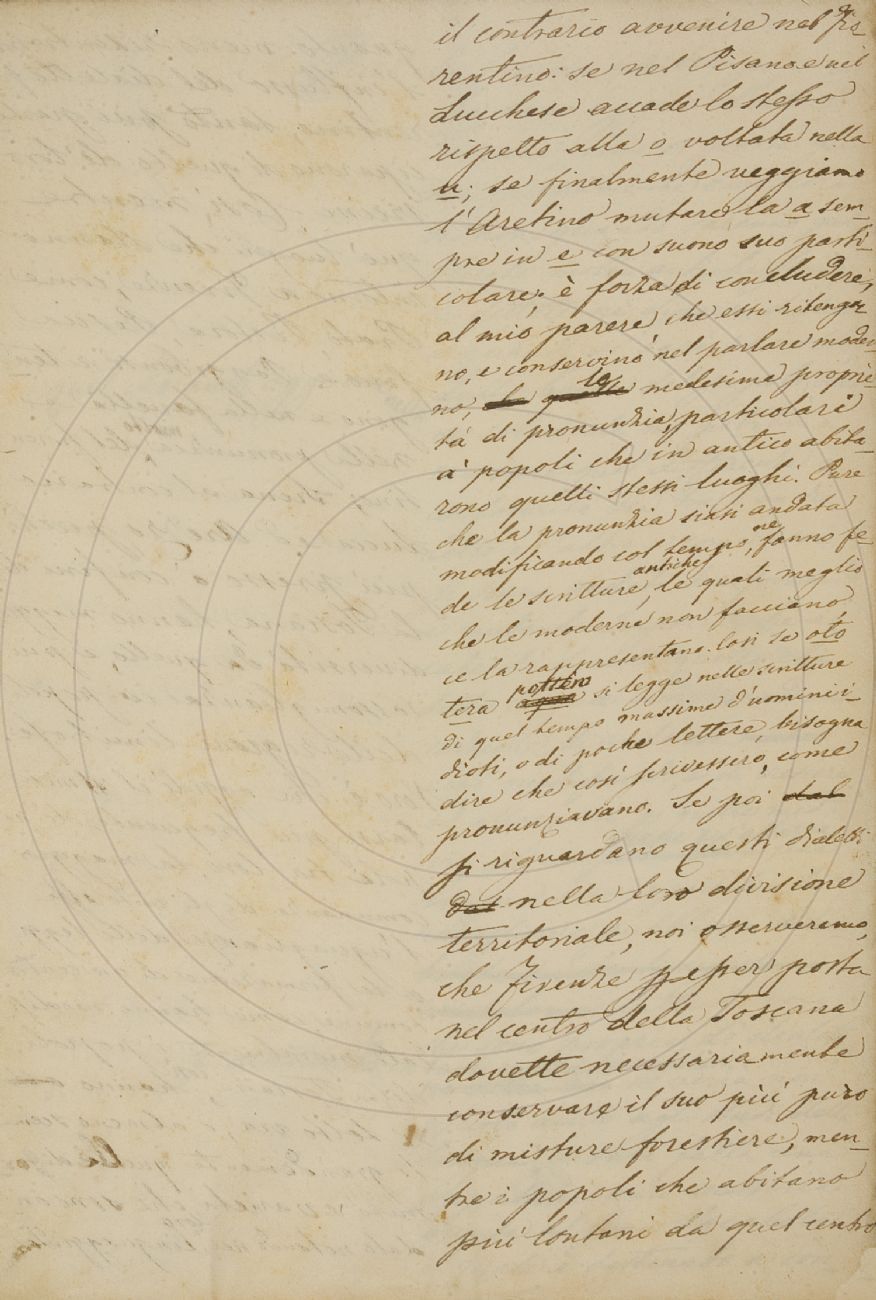 il contrario avvenire nel fio-
rentino: se nel Pisano e nel
Lucchese accade lo stesso
rispetto alla o voltata nella
u; se finalmente veggiamo
l'Aretino mutare la a sem-
pre in e con suono suo parti-
colare; è forza di concludere,
al mio parere che essi ritenga-
no, e conservino nel parlare moder-
no, le medesime proprie-
tà di pronunzia, particolari
a' popoli che in antico abita-
rono quelli stessi luoghi. Pure
che la pronunzia siasi andata
modificando col tempo, ne fanno fe
de le scritture antiche, le quali meglio
che le moderne non facciano,
ce la rappresentano. Così se oto
tera si legge nelle scritture
di quel tempo massime d'uomini i-
dioti, o di poche lettere, bisogna
dire che così scrivessero, come
pronunziavano. Se poi dal
si riguardano questi dialetti
nella loro divisione
territoriale, noi osserveremo,
che Firenze per posta
nel centro della Toscana
dovette necessariamente
conservare il suo più puro
di misture forestiere, men-
tre i popoli che abitano
più lontani da quel centro